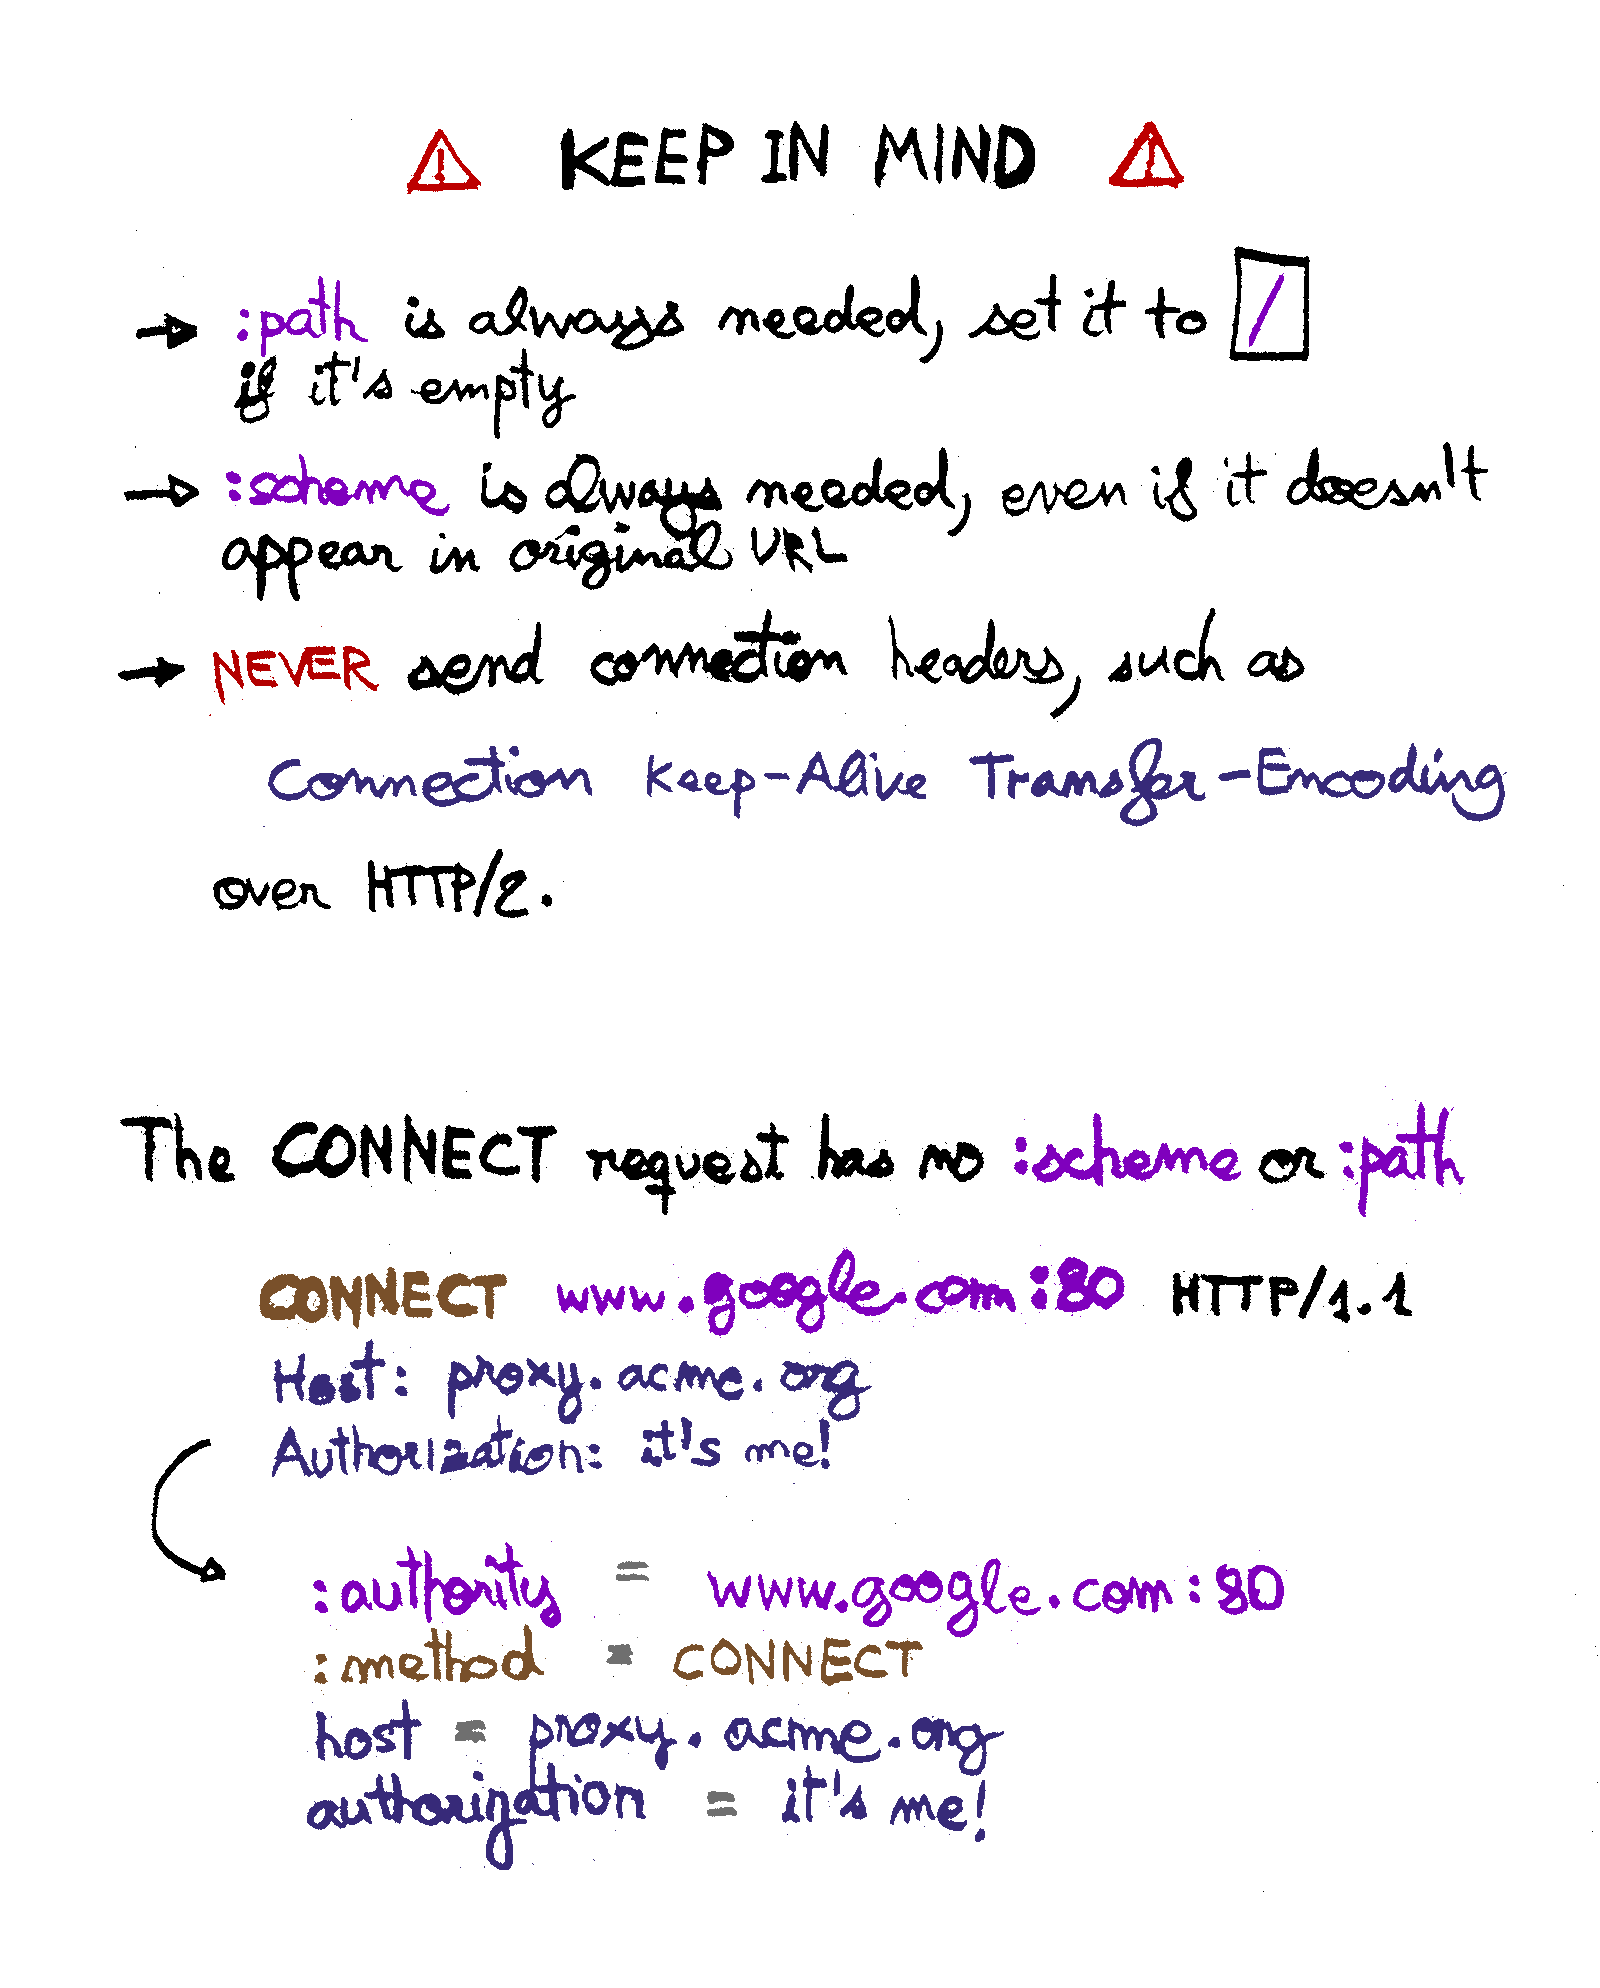 KEEP IN MIND
:path is always needed, set it to /
if it's empty
:scheme is always needed, even if it doesn't
appear in original URL
NEVER send connection headers, such as
Connection Keep-Alive Transfer-Encoding
over HTTP/2.
The CONNECT request has no :scheme or :path
CONNECT www.google.com:80 HTTP/1.1
Host: proxy.acme.org
Authorization: it's me!
:authority = www.google.com:80
:method = CONNECT
host = proxy.acme.org
authorization = it's me!